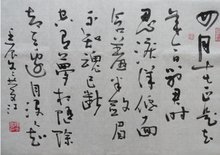 四月十七正是去
年今日别君时
忍泪佯低面
含羞半敛眉
不知魂已断
空有梦相随除
却天边月没人知
壬辰